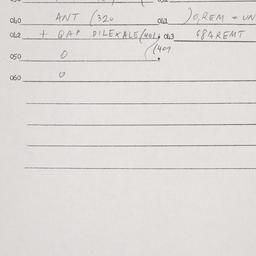 060 ANT (320 061 )0,REM = UN
062 + QAP DILEXALE (402, 063 68AREMT
(401
050 0
060 0